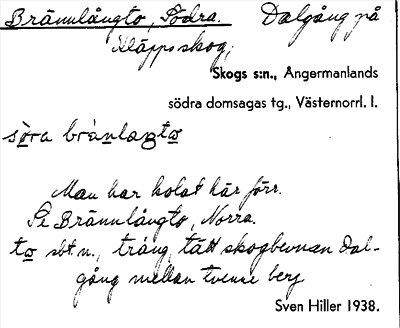 Brännlångto, Södra. Dalgång på
Kläppskog,
Skogs s:n., Ångermanlands
södra domsagas tg., Västernorrl. l.
sö̱ra brä̀nlaŋto̱
Man har kolat här förr.
Se Brännlångto, Norra.
to̱ sbt n., trång, tätt skogbevuxen dal-
gång mellan tvenne berg
Sven Hiller 1938.